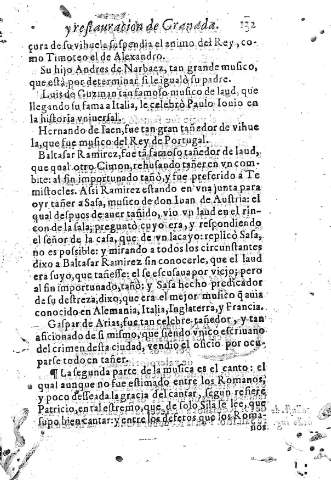 y restauracion de Granada. 132
çura de su vihuela suspendia el animo del Rey, co-
mo Timoteo el de Alexandro.
Su hijo Andres de Narbaez, tan grande musico,
que está por determinar si le igualò su padre.
Luis de Guzman tan famoso musico de laud, que
llegando su fama a Italia, le celebrò Paulo Iouio en
la historia vniuersal.
Hernando de Iaen, fue tan gran tañedor de vihue
la, que fue musico del Rey de Portugal.
Baltasar Ramirez, fue tã famoso tañedor de laud,
que qual otro Cimon, rehusando tañer en vn com-
bite: al fin importunado tañò, y fue preferido a Te
mistocles. Assi Ramirez estando en vna junta para
oyr tañer a Sasa, musico de don Iuan de Austria: el
qual despues de auer tañido, vio vn laud en el rin-
con de la sala; preguntò cuyo era, y respondiendo
el señor de la casa, que de vn lacayo: replicò Sasa,
no es possible: y mirando a todos los circunstantes
dixo a Baltasar Ramirez sin conocerle, que el laud
era suyo, que tañesse: el se escusaua por viejo; pero
al fin importunado, tañò: y Sasa hecho predicador
de su destreza, dixo, que era el mejor musico q̃ auia
conocido en Alemania, Italia, Inglaterra, y Francia.
Gaspar de Arias, fue tan celebre tañedor, y tan
aficionado de si mismo, que siendo vnico escriuano
del crimen desta ciudad, vendiò el oficio por ocu-
parse todo en tañer.
¶ La segunda parte de la musica es el canto: el
qual aunque no fue estimado entre los Romanos,
y poco desseada la gracia del cantar, segun refiere
Patricio, en tal estremo, que de solo Sila se lee, que
supo bien cantar: y entre los defetos que los Roma-
nos